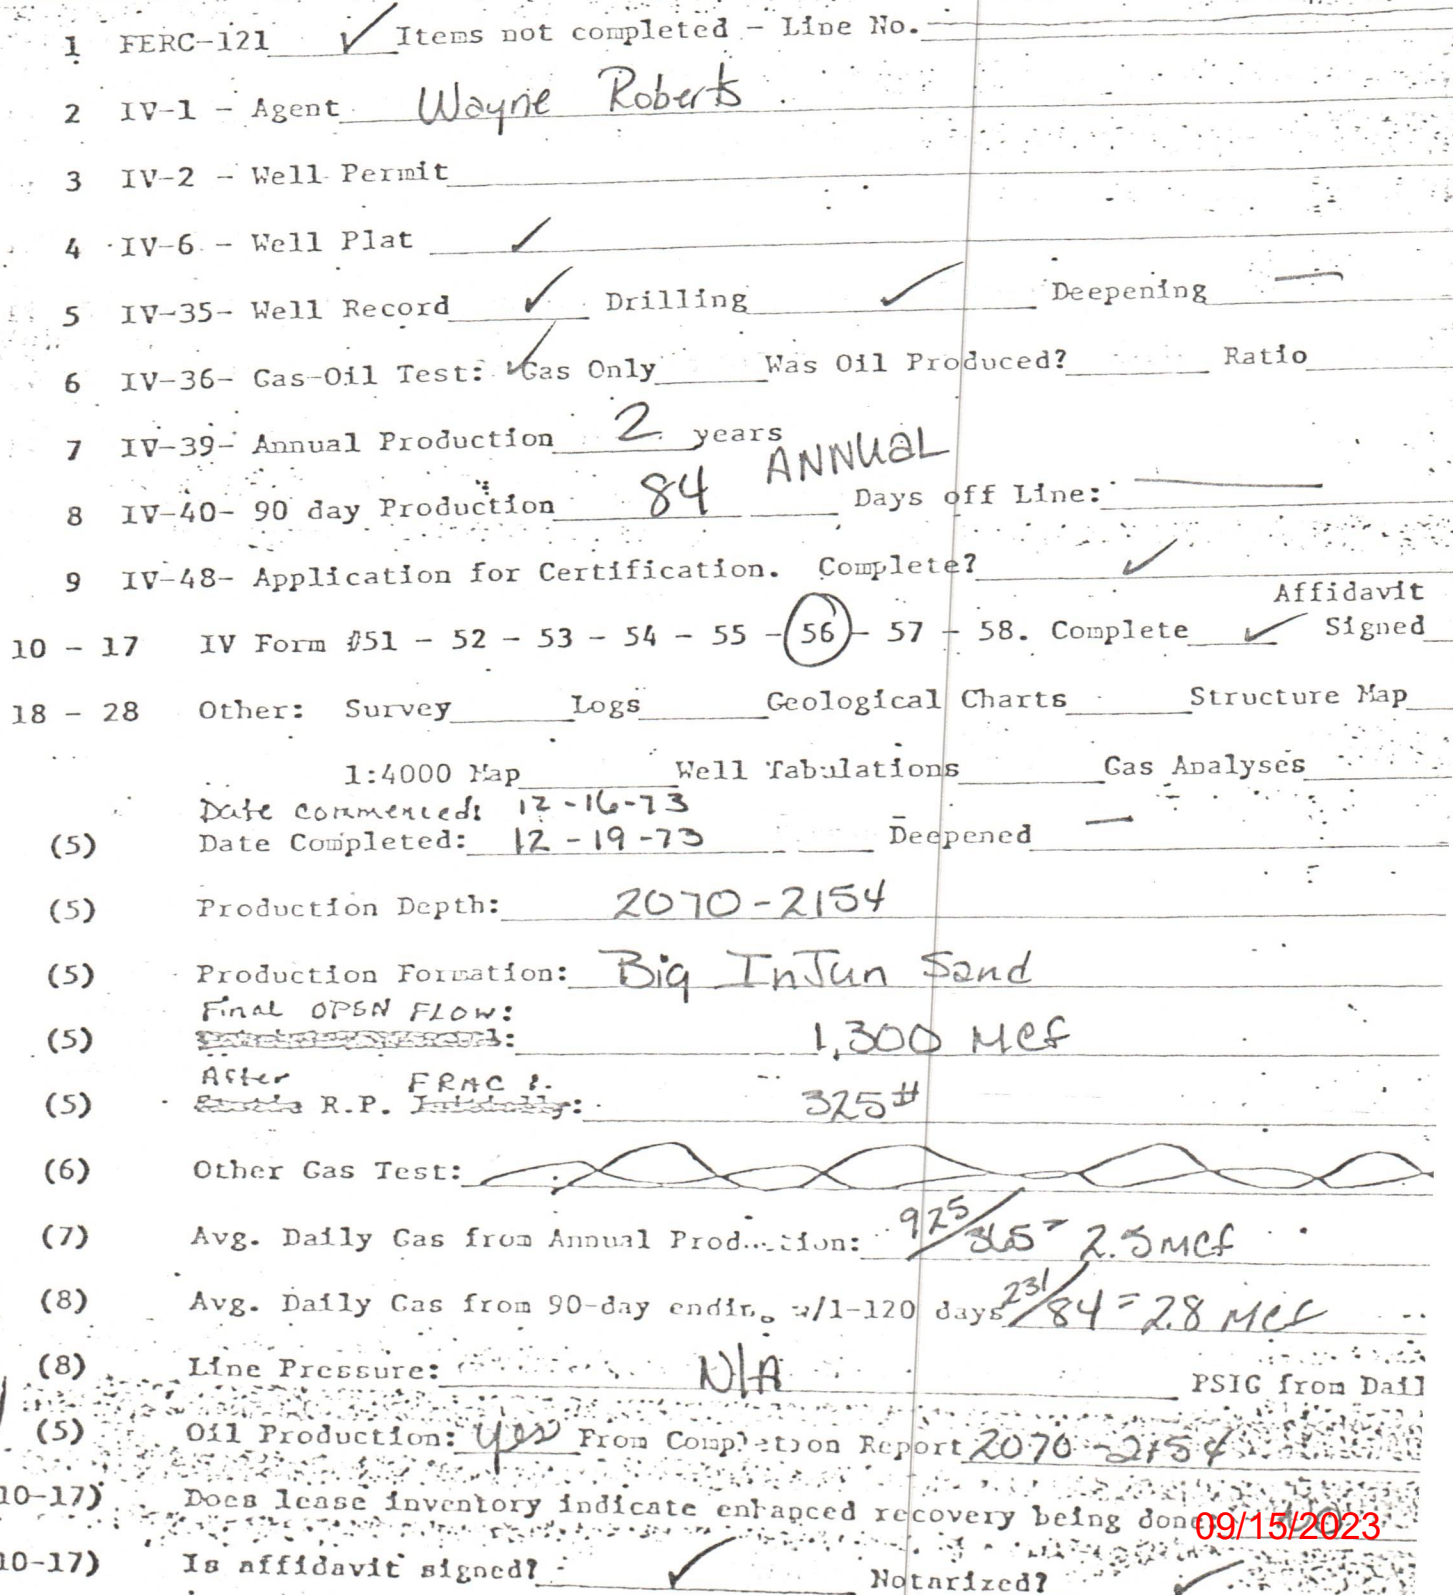 1 FERC-121 ✓ Items not completed - Line No.
2 IV-1 - Agent Wayne Roberts
3 IV-2 - Well Permit
4 IV-6 - Well Plat ✓
5 IV-35- Well Record ✓ Drilling ✓ Deepening —
6 IV-36- Gas-Oil Test: ✓ Gas Only Was Oil Produced? Ratio
7 IV-39- Annual Production 2 years
ANNUAL
8 IV-40- 90 day Production 84 Days off Line: —
9 IV-48- Application for Certification. Complete? ✓
Affidavit
10 - 17 IV Form #51 - 52 - 53 - 54 - 55 - 56 - 57 - 58. Complete ✓ Signed
18 - 28 Other: Survey Logs Geological Charts Structure Map
1:4000 Map Well Tabulations Gas Analyses
Date commenced: 12-16-73
(5) Date Completed: 12-19-73 Deepened —
(5) Production Depth: 2070-2154
(5) Production Formation: Big InJun Sand
Final OPEN FLOW:
(5) 1,300 Mcf
After FRAC
(5) R.P. 325#
(6) Other Gas Test:
(7) Avg. Daily Gas from Annual Production: 925/365 = 2.5 Mcf
(8) Avg. Daily Gas from 90-day ending w/1-120 days 231/84 = 2.8 Mcf
(8) Line Pressure: N/A PSIG from Dail
(5) Oil Production: yes From Completion Report 2070-2154
10-17) Does lease inventory indicate enhanced recovery being done
09/15/2023
10-17) Is affidavit signed? ✓ Notarized? ✓